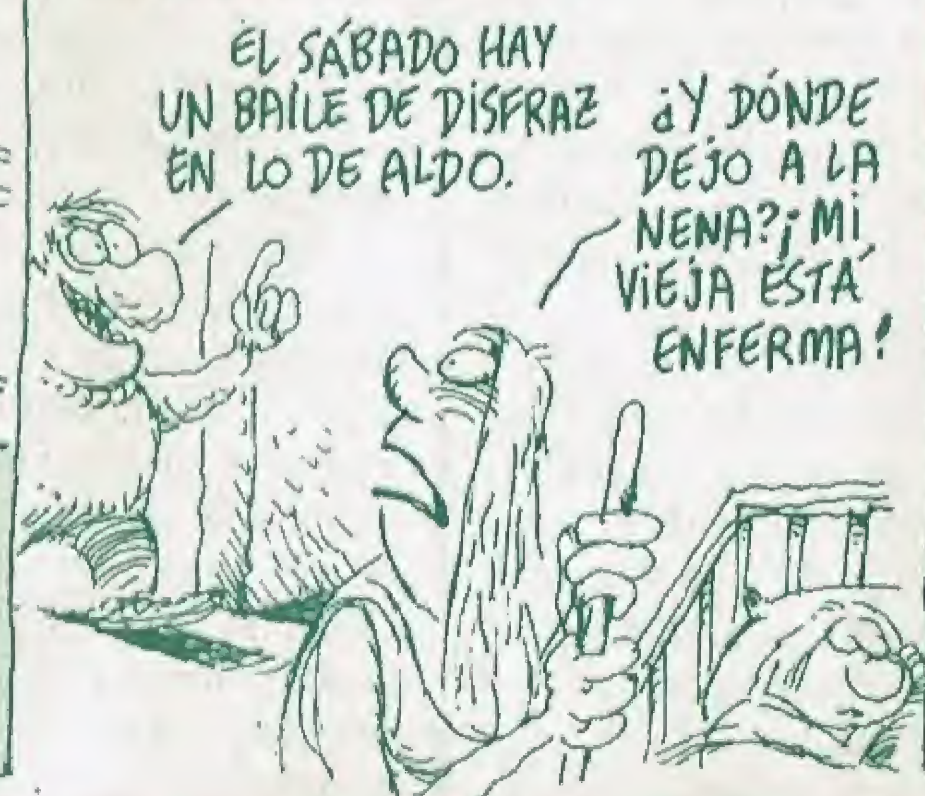 EL SÁBADO HAY
UN BAILE DE DISFRAZ
EN LO DE ALDO.
¿Y DÓNDE
DEJO A LA
NENA? ¡MI
VIEJA ESTÁ
ENFERMA!